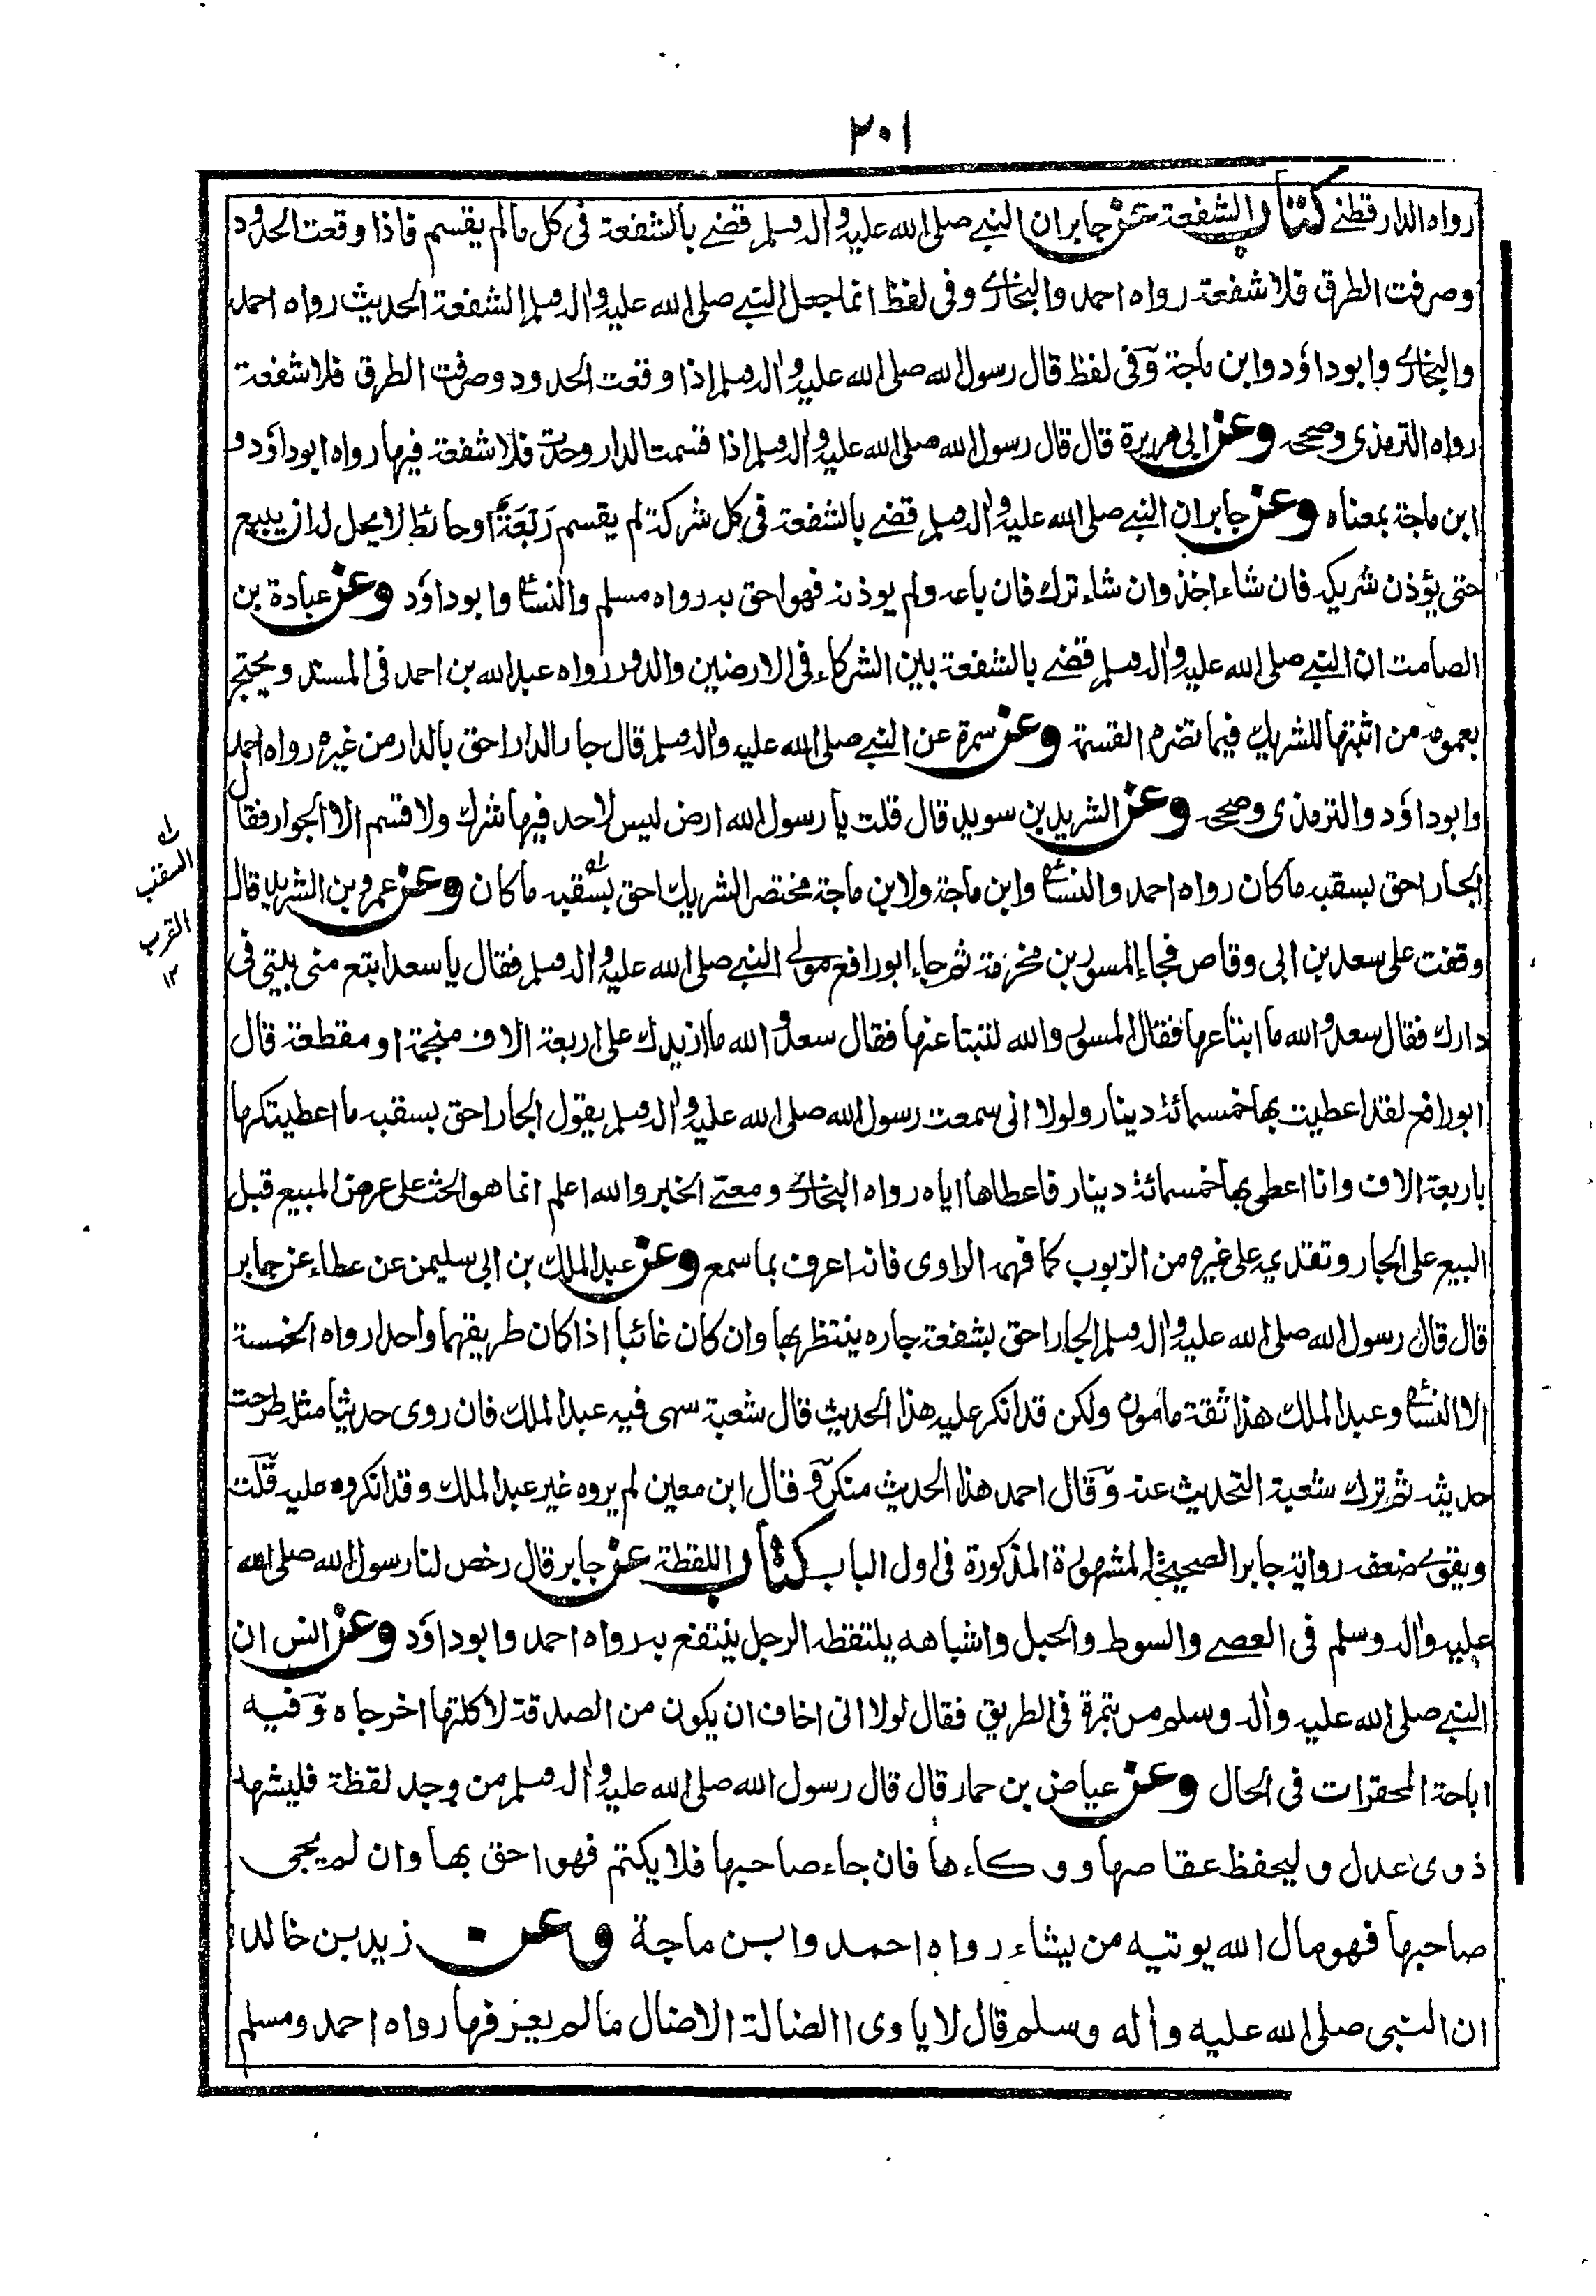 ٢٠١
رواه الدارقطنے كتاب الشفعة عن جابر ان النبے صلى الله عليه واله وسلم قضے بالشفعة فى كل مالم يقسم فاذا وقعت الحدود
وصرفت الطرق فلا شفعة رواه احمد والبخارے وفى لفظ انما جعل النبے صلى الله عليه واله وسلم الشفعة الحديث رواه احمد
والبخارے وابوداؤد وابن ماجة وفى لفظ قال رسول الله صلى الله عليه واله وسلم اذا وقعت الحدود وصرفت الطرق فلا شفعة
رواه الترمذى وصححه وعن ابى هريرة قال قال رسول الله صلى الله عليه واله وسلم اذا قسمت الدار وحدت فلا شفعة فيها رواه ابوداؤد و
ابن ماجة بمعناه وعن جابر ان النبے صلى الله عليه واله وسلم قضے بالشفعة فى كل شركة لم يقسم رَبْعَةً او حائط لا يحل له ان يبيع
حتى يؤذن شريكه فان شاء اخذ وان شاء ترك فان باعه ولم يوذنه فهو احق به رواه مسلم والنسائے وابوداؤد وعن عبادة بن
الصامت ان النبے صلى الله عليه واله وسلم قضے بالشفعة بين الشركاء فى الارضين والدور رواه عبدالله بن احمد فى المسند ويحتج
بعمومه من اثبتها للشريك فيما تضره القسمة وعن سمرة عن النبے صلى الله عليه واله وسلم قال جار الدار احق بالدار من غيره رواه احمد
وابوداؤد والترمذى وصححه وعن الشريد بن سويد قال قلت يا رسول الله ارض ليس لاحد فيها شرك ولا قسم الا الجوار فقال
الجار احق بسقبه ماكان رواه احمد والنسائے وابن ماجة ولابن ماجة مختصر الشريك احق بسقبه ماكان وعن عمرو بن الشريد قال
وقفت على سعد بن ابى وقاص فجاء المسور بن مخرمة ثم جاء ابورافع مولے النبے صلى الله عليه واله وسلم فقال يا سعد ابتع منى بيتى فى
دارك فقال سعد والله ما ابتاعها فقال المسور والله لتبتاعنها فقال سعد والله ما ازيدك على اربعة الاف منجمة او مقطعة قال
ابورافع لقد اعطيت بها خمسمائة دينار ولولا انى سمعت رسول الله صلى الله عليه واله وسلم يقول الجار احق بسقبه ما اعطيتكها
باربعة الاف وانا اعطى بها خمسمائة دينار فاعطاها اياه رواه البخارے ومعنے الخبر والله اعلم انما هو الحث على عرض المبيع قبل
البيع على الجار وتقديمه على غيره من الزبون كما فهمه الراوى فانه اعرف بما سمع وعن عبدالملك بن ابى سليمن عن عطاء عن جابر
قال قال رسول الله صلى الله عليه واله وسلم الجار احق بشفعة جاره ينتظر بها وان كان غائبا اذا كان طريقهما واحدا رواه الخمسة
الا النسائے وعبدالملك هذا ثقة مامون ولكن قد انكر عليه هذا الحديث قال شعبة سهى فيه عبدالملك فان روى حديثا مثله طرحت
حديثه ثم ترك شعبة التحديث عنه وقال احمد هذا الحديث منكر وقال ابن معين لم يروه غير عبدالملك وقد انكروه عليه قلت
ويقوے ضعفه رواية جابر الصحيحة المشهورة المذكورة فى اول الباب كتاب اللقطة عن جابر قال رخص لنا رسول الله صلى الله
عليه واله وسلم فى العصے والسوط والحبل واشباهه يلتقطه الرجل ينتفع به رواه احمد وابوداؤد وعن انس ان
النبے صلى الله عليه واله وسلم مر بتمرة فى الطريق فقال لولا انى اخاف ان يكون من الصدقة لاكلتها اخرجاه وفيه
اباحة المحقرات فى الحال وعن عياض بن حمار قال قال رسول الله صلى الله عليه واله وسلم من وجد لقطة فليشهد
ذوى عدل وليحفظ عفاصها ووكاءها فان جاء صاحبها فلا يكتم فهو احق بها وان لم يجى
صاحبها فهو مال الله يوتيه من يشاء رواه احمد وابن ماجة وعن زيد بن خالد
ان النبى صلى الله عليه واله وسلم قال لا ياوى الضالة الا ضال مالم يعرفها رواه احمد ومسلم
له
السقب
القرب
١٢